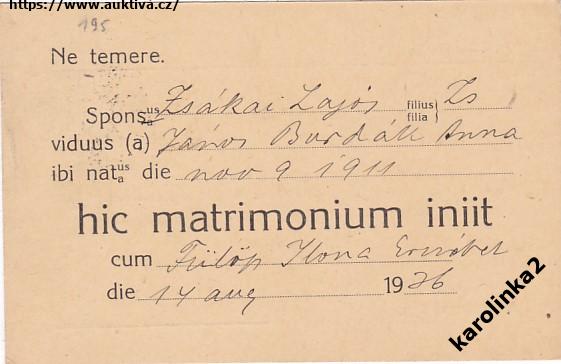 https://www.auktiva.cz/
195
Ne temere.
Spons us a Zsákai Lajos filius filia Zs
viduus (a) János Burdátt Anna
ibi nat us a die nov 9 1911
hic matrimonium iniit
cum Fülöp Ilona Erzsébet
die 14 aug 1936
karolinka2